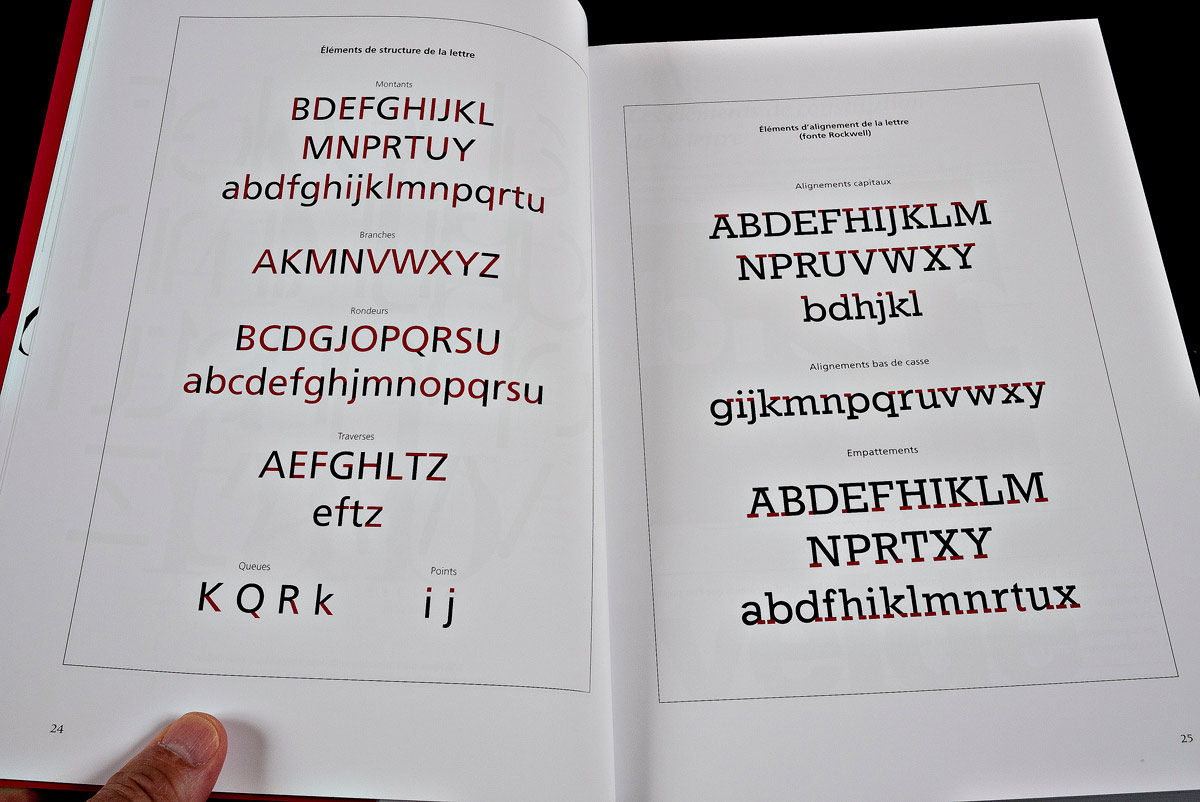 Éléments de structure de la lettre
Montants
BDEFGHIJKL
MNPRTUY
abdfghijklmnpqrtu
Branches
AKMNVWXYZ
Rondeurs
BCDGJOPQRSU
abcdefghjmnopqrsu
Traverses
AEFGHLTZ
eftz
Queues
K Q R k
Points
i j
24
Éléments d'alignement de la lettre
(fonte Rockwell)
Alignements capitaux
ABDEFHIJKLM
NPRUVWXY
bdhjkl
Alignements bas de casse
gijkmnpqruvwxy
Empattements
ABDEFHIKLM
NPRTXY
abdfhiklmnrtux
25